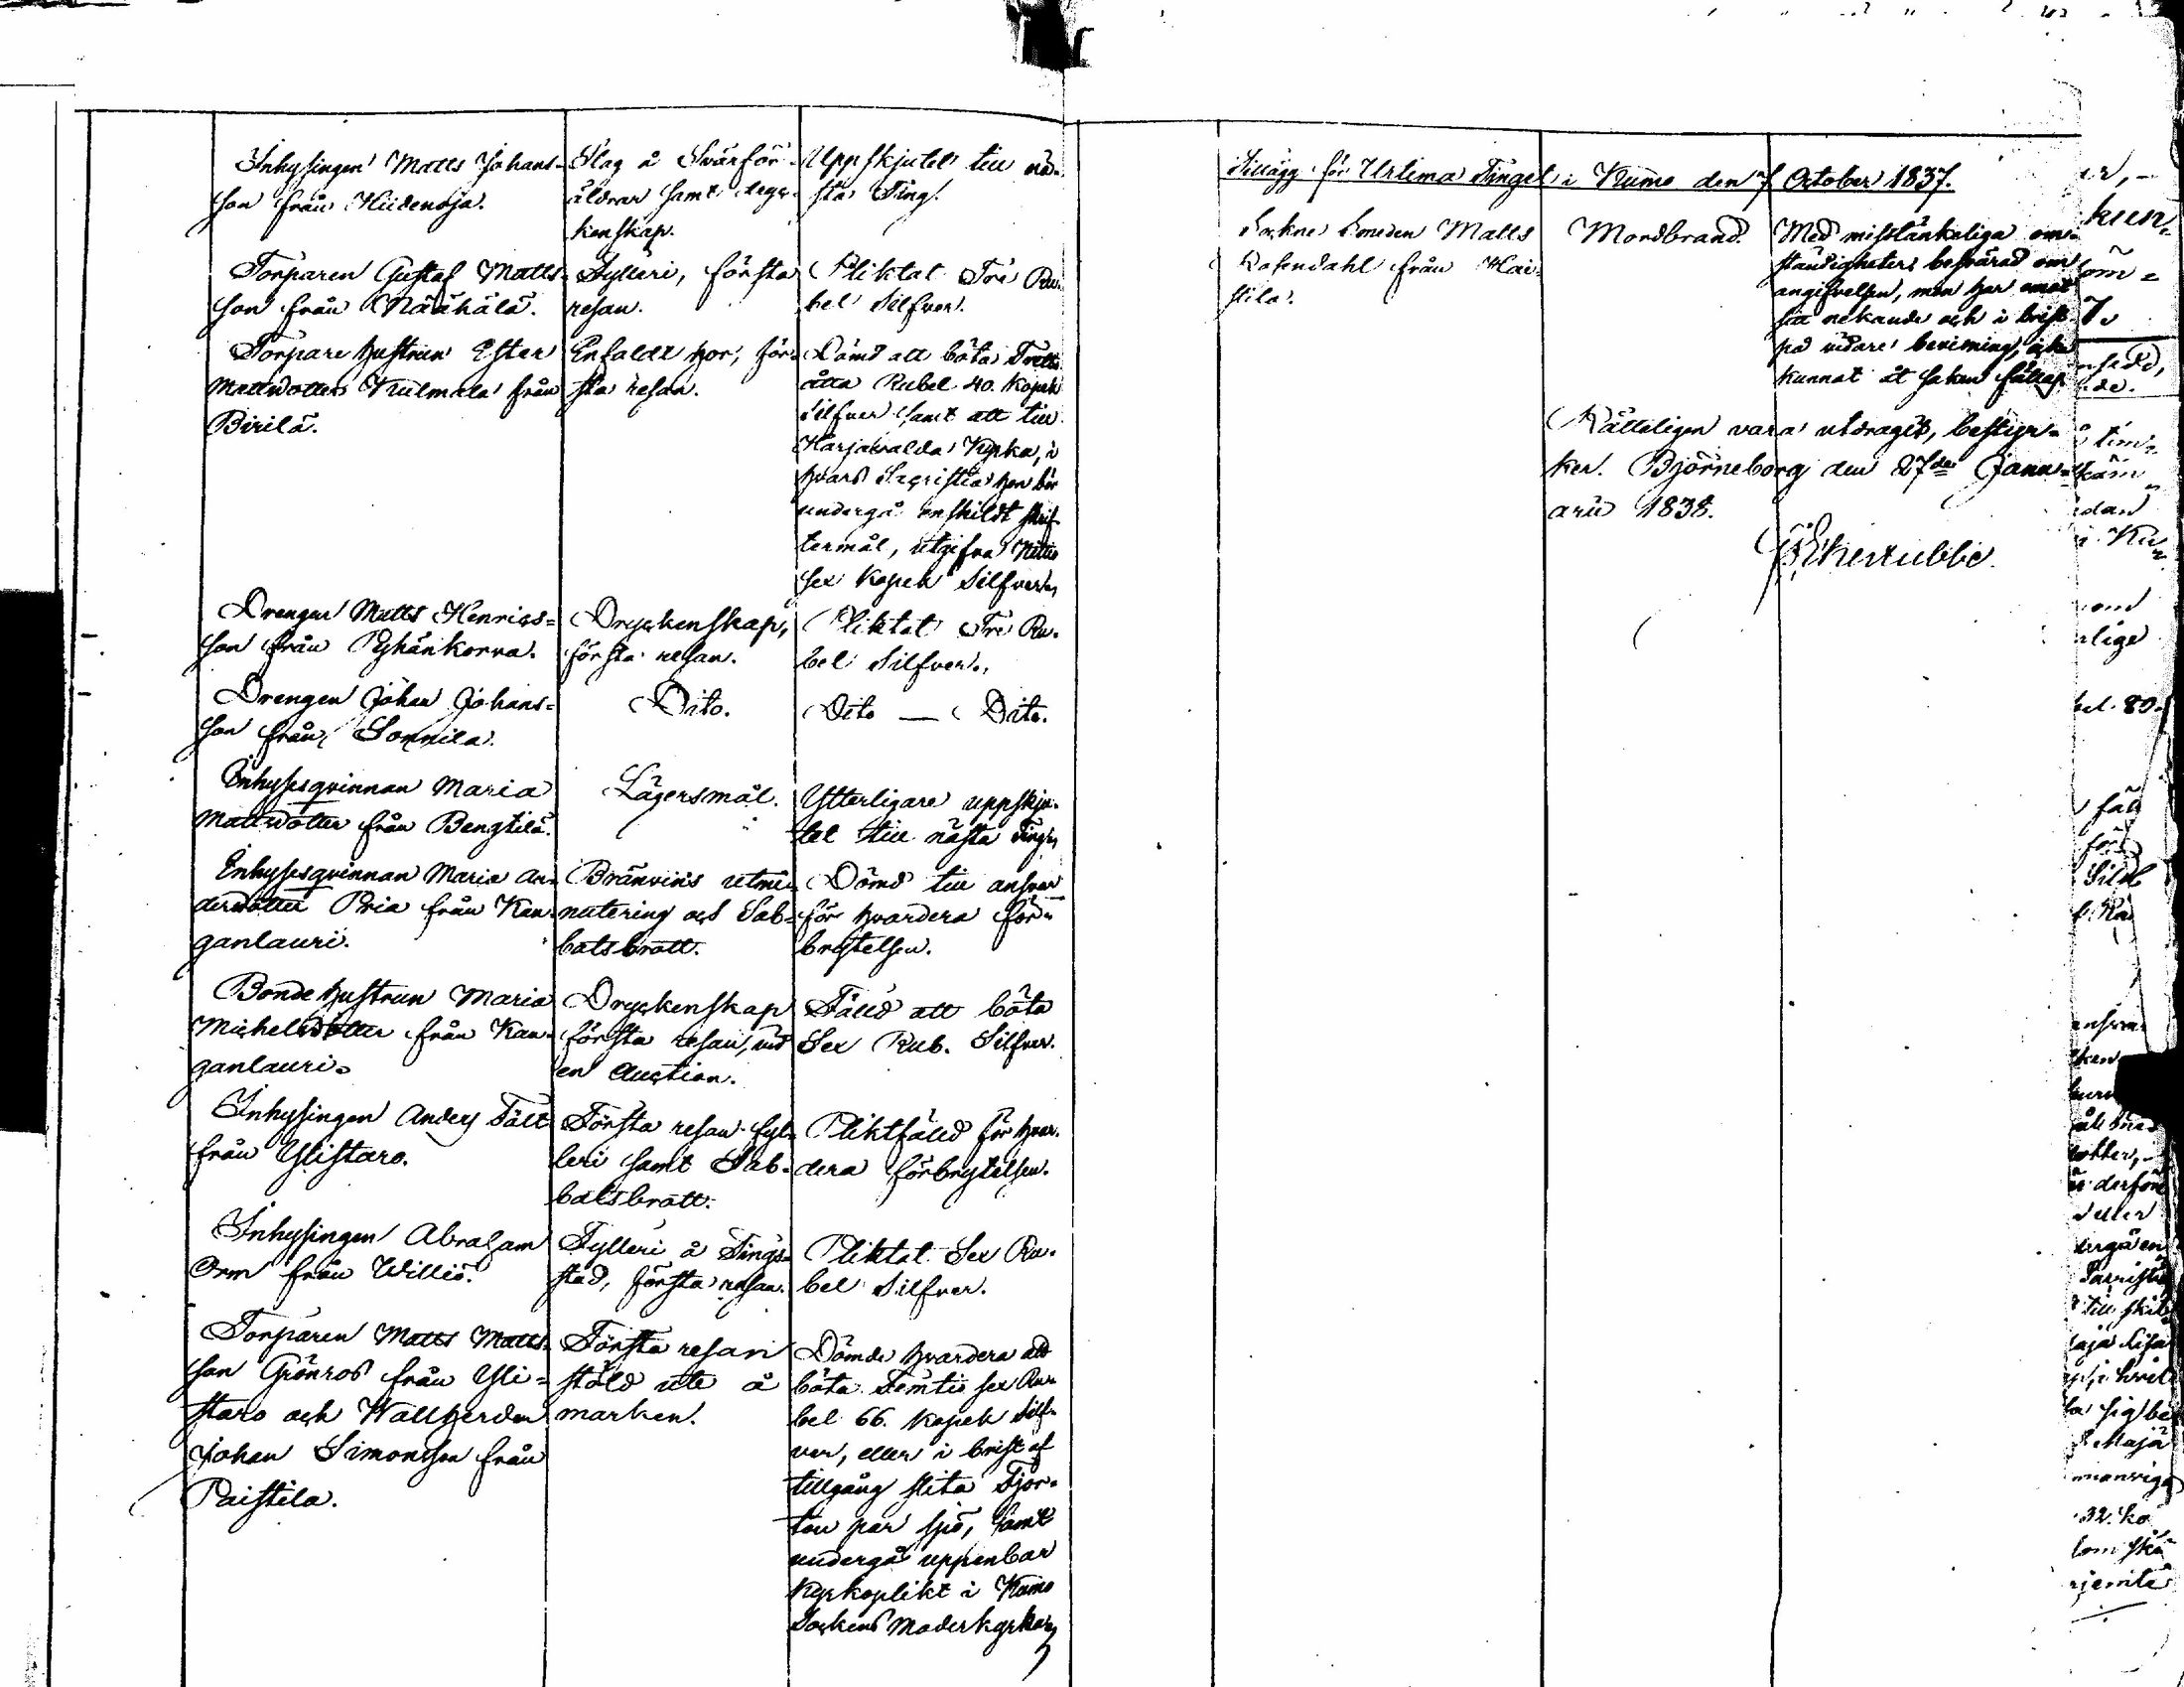 Inhysingen Matts Johans-
son från Hiidenoja.
Slag å Svärför-
äldrar samt dryc-
kenskap.
Uppskjutet till nä-
sta Ting.
Torparen Gustaf Matts-
son från Näähälä.
Fylleri, första
resan.
Pliktat Tre Ru-
bel Silfver.
Torpare hustrun Ester
Mattsdotter Kulmala från
Birilä.
Enfaldt hor, för-
sta resan.
Dömd att böta Tretti
åtta Rubel 40. Kopek
Silfver samt att till
Harjavalda Kyrka, i
hvars Sacristia hon bör
undergå enskildt skrif-
termål, utgifva Nittio
sex Kopek Silfver.
Drengen Matts Henrics-
son från Pyhänkorva.
Dryckenskap,
första resan.
Pliktat Tre Ru-
bel Silfver.
Drengen Johan Johans-
son från Sonnila.
Dito.
Dito — Dito.
Inhysesqvinnan Maria
Mattsdotter från Bengtilä.
Lägersmål.
Ytterligare uppskju-
tet till nästa Ting.
Inhysesqvinnan Maria An-
dersdotter Pria från Kan-
ganlauri.
Bränvins utmi-
nutering och Sab-
batsbrott.
Dömd till ansvar
för hvardera för-
brytelsen.
Bonde hustrun Maria
Michelsdotter från Kan-
ganlauri.
Dryckenskap
första resan, vid
en Auction.
Fälld att böta
Sex Rub. Silfver.
Inhysingen Anders Fält
från Ylistaro.
Första resan fyl-
leri samt Sab-
batsbrott.
Pliktfälld för hvar-
dera förbrytelsen.
Inhysingen Abraham
Orm från Williö.
Fylleri å Tings-
stad, första resan.
Pliktat Sex Ru-
bel Silfver.
Torparen Matts Matts-
son Grönros från Yli-
staro och Wallherden
Johan Simonsson från
Paistila.
Första resan
stöld ute å
marken.
Dömde hvardera att
böta Femtio sex Ru-
bel 66. Kopek Silf-
ver, eller i brist af
tillgång slita Fjor-
ton par spö, samt
undergå uppenbar
Kyrkoplikt i Kumo
Sockens Moderkyrka
Tillägg för Urtima Tinget i Kumo den 7 October 1837.
Sockne Smeden Matts
Rosendahl från Hai-
stila.
Mordbrand.
Med misstänkeliga om-
ständigheter besvärad om
angifvelsen, men har emot
sitt nekande och i brist
på vidare bevisning, icke
kunnat åt saken fällas
Rätteligen vara utdraget, bestyr-
ker. Björneborg den 27de Janu-
arii 1838.